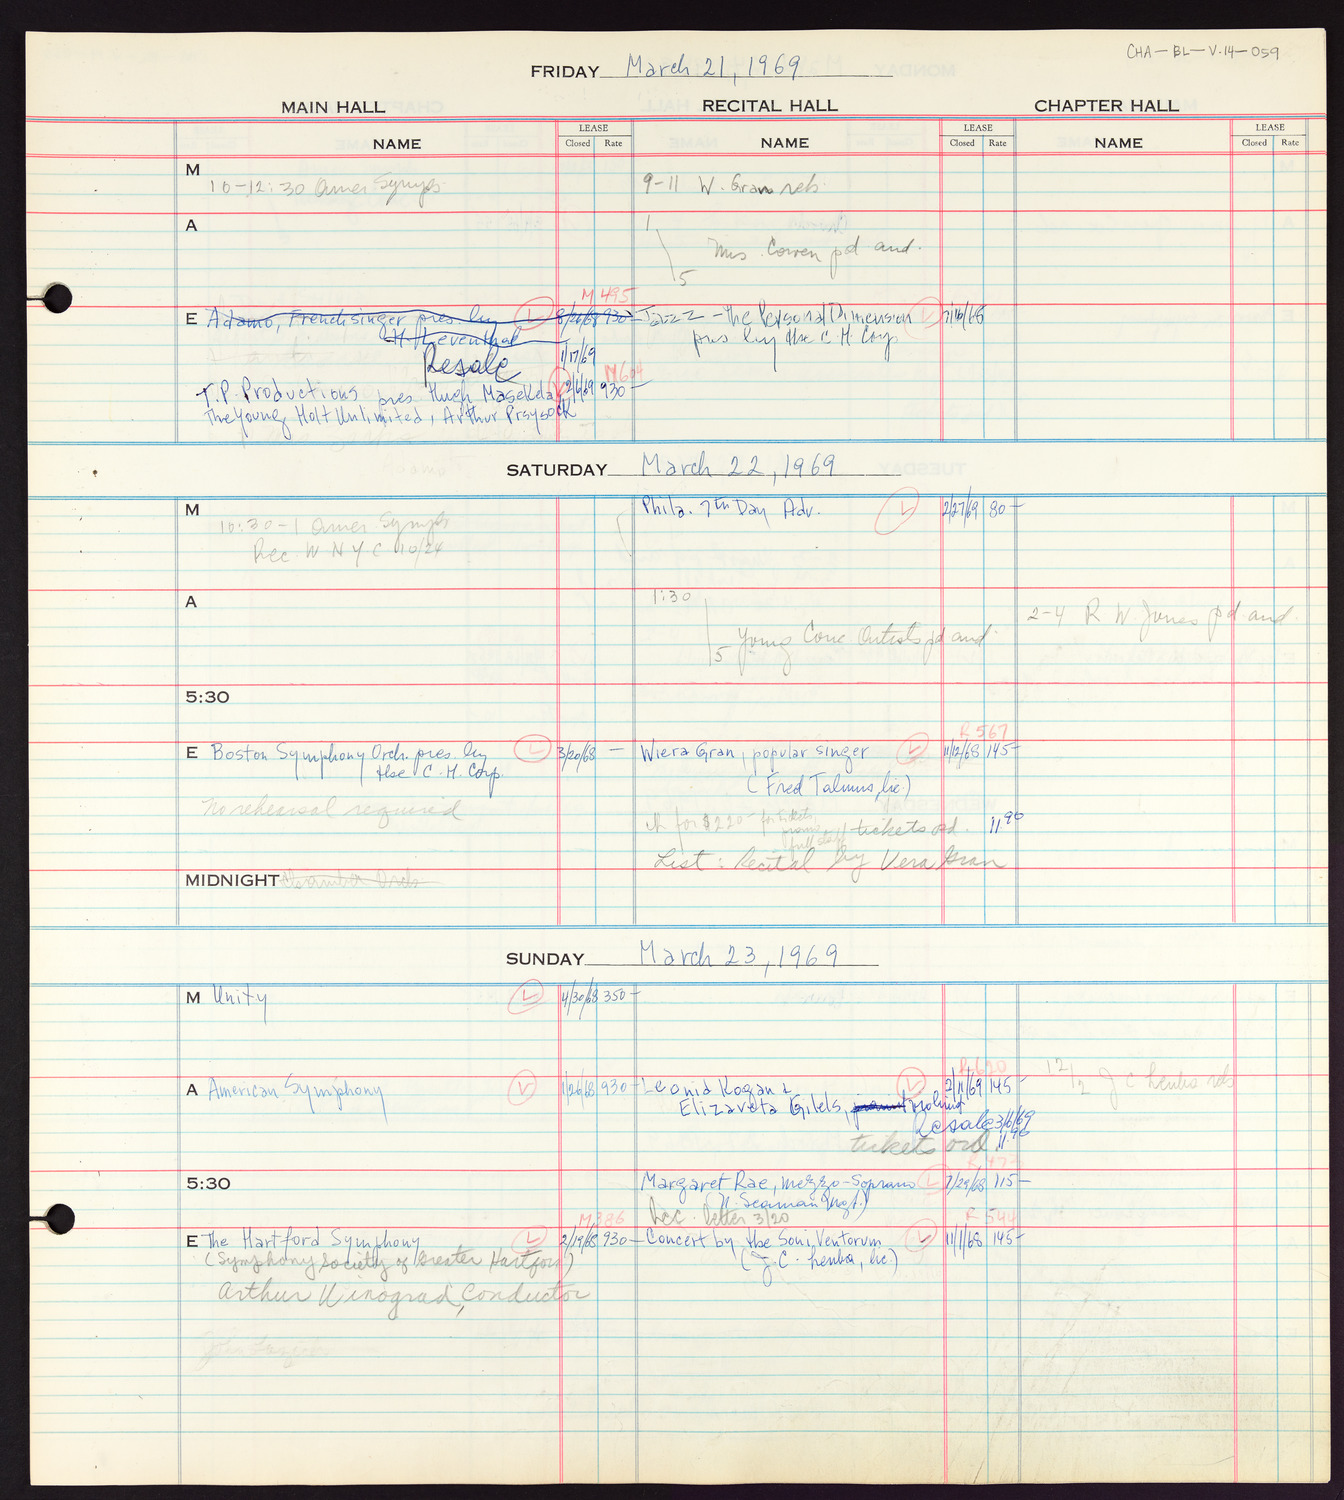 CHA-BL-V.14-059
FRIDAY March 21, 1969
MAIN HALL RECITAL HALL CHAPTER HALL
NAME LEASE Closed Rate NAME LEASE Closed Rate NAME LEASE Closed Rate
M
10-12:30 Amer Symph.
9-11 W. Gran reh.
A
1
Mrs. Cowen pd aud.
5
M 495
E Adamo, French singer pres. by L 8/26/68 930-
H. Leventhal
Jazz - the Personal Dimension L 7/16/68
pres by the C. H. Corp
Resale 1/17/69
M604
T.P. Productions pres Hugh Masekela 2/6/69 930-
The Young Holt Unlimited, Arthur Prsysock
SATURDAY March 22, 1969
M
10:30-1 Amer Symph
Rec. WNYC 10/24
Phila. 7th Day Adv. L 2/27/69 80-
A
1:30
5 Young Conc Artists pd aud.
2-4 R W. Jones pd aud.
5:30
R567
E Boston Symphony Orch. pres. by L 3/20/68 -
the C. H. Corp.
No rehearsal required
Wiera Gran, popular singer L 11/12/68 145-
(Fred Talmus, Inc.)
ck for $220- for tickets,
tickets od. 11.90
List: Recital by Vera Gran
MIDNIGHT Chamber Orch
SUNDAY March 23, 1969
M Unity L 4/30/68 350-
R620
A American Symphony 1/26/68 930-
Leonid Kogan & L 2/11/69 145-
Elizaveta Gilels, violinist
Resale 3/6/69
tickets ord 11.90
12/2 J C Lenba reh
5:30
Margaret Rae, mezzo-soprano L 7/29/68 115-
(N. Seaman Mgt.)
Rec. letter 3/20
M386
R 544
E The Hartford Symphony L 2/19/68 930-
(Symphony Society of Greater Hartford)
Arthur Winograd, Conductor
Concert by the Soni Ventorum L 11/1/68 145-
(J. C. Lenba, Inc.)